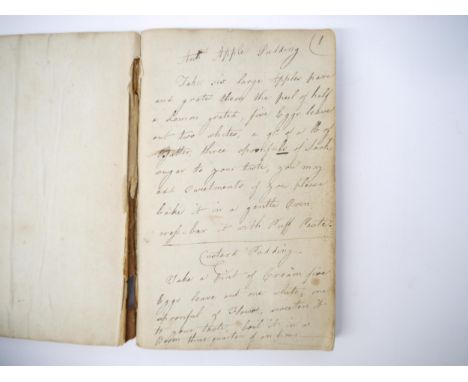 Apple Pudding (1
Take six large Apples pare
and grate them the peel of half
a Lemon grated, five Eggs leave
out two whites, a qr of a lb of
Butter, three spoonfuls of Sack
sugar to your taste, you may
add Sweetmeats if you please
bake it in a gentle Oven
bar it with Puff Paste.
Custard Pudding
Take a Pint of Cream five
Eggs leave out one white, one
spoonful of Flour, sweeten it
to your taste, boil it in a
Bason three quarters of an hour